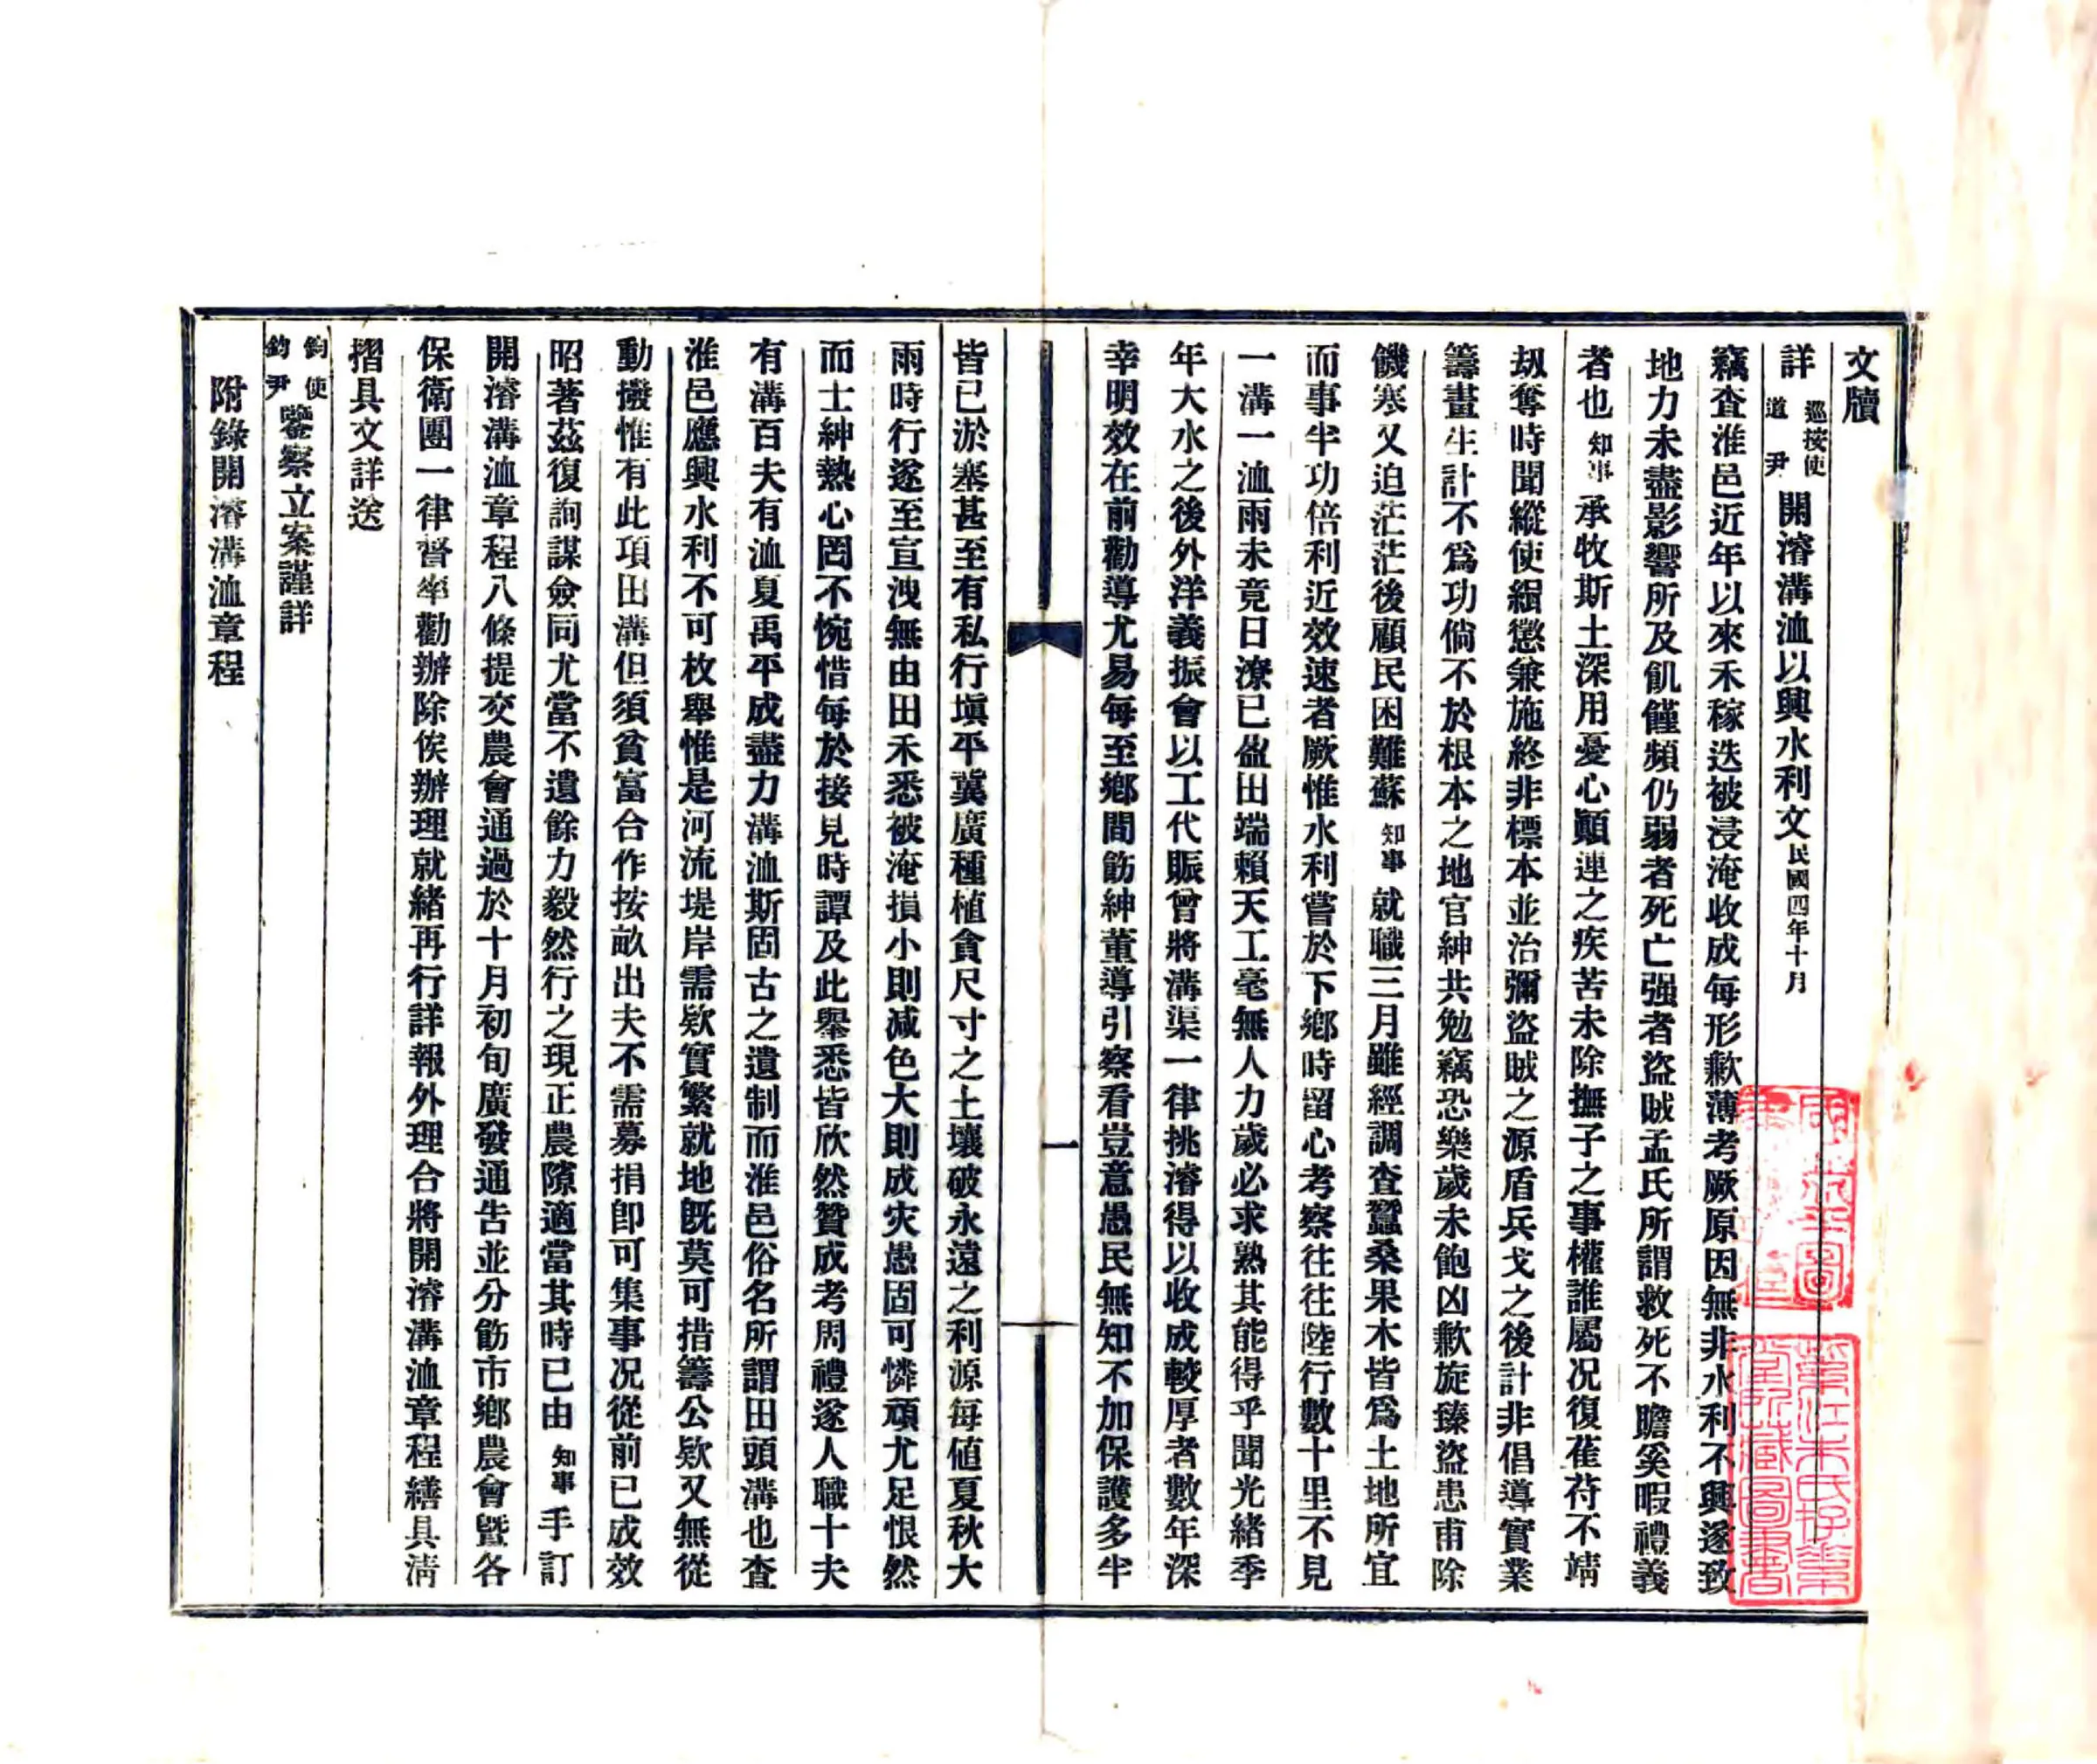 文牘
詳巡按使道尹開濬溝洫以興水利文民國四年十月
竊查淮邑近年以來禾稼迭被浸淹收成每形歉薄考厥原因無非水利不興遂致
地力未盡影響所及飢饉頻仍弱者死亡强者盜賊孟氏所謂救死不贍奚暇禮義
者也知事承牧斯土深用憂心顚連之疾苦未除撫子之事權誰屬况復萑苻不靖
刼奪時聞縱使緝懲兼施終非標本並治彌盜賊之源盾兵戈之後計非倡導實業
籌畫生計不爲功倘不於根本之地官紳共勉竊恐樂歲未飽凶歉旋臻盜患甫除
饑寒又迫茫茫後顧民困難蘇知事就職三月雖經調查蠶桑果木皆爲土地所宜
而事半功倍利近效速者厥惟水利嘗於下鄉時留心考察往往陸行數十里不見
一溝一洫雨未竟日潦已盈田端賴天工毫無人力歲必求熟其能得乎聞光緒季
年大水之後外洋義振會以工代賑曾將溝渠一律挑濬得以收成較厚者數年深
幸明效在前勸導尤易每至鄉間飭紳董導引察看豈意愚民無知不加保護多半
一
皆已淤塞甚至有私行塡平冀廣種植貪尺寸之土壤破永遠之利源每値夏秋大
雨時行遂至宣洩無由田禾悉被淹損小則减色大則成灾愚固可憐頑尤足恨然
而士紳熱心罔不惋惜每於接見時譚及此舉悉皆欣然贊成考周禮遂人職十夫
有溝百夫有洫夏禹平成盡力溝洫斯固古之遺制而淮邑俗名所謂田頭溝也查
淮邑應興水利不可枚舉惟是河流堤岸需欵實繁就地旣莫可措籌公欵又無從
動撥惟有此項田溝但須貧富合作按畝出夫不需募捐卽可集事况從前已成效
昭著茲復詢謀僉同尤當不遺餘力毅然行之現正農隙適當其時已由知事手訂
開濬溝洫章程八條提交農會通過於十月初旬廣發通告並分飭市鄉農會曁各
保衛團一律督率勸辦除俟辦理就緒再行詳報外理合將開濬溝洫章程繕具清
摺具文詳送
鈞使鈞尹鑒察立案謹詳
附錄開濬溝洫章程